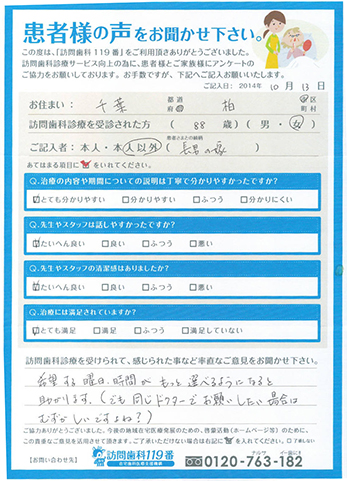 患者様の声をお聞かせ下さい。
この度は、「訪問歯科119番」をご利用頂きありがとうございました。
訪問歯科診療サービス向上の為に、患者様とご家族様にアンケートの
ご協力をお願いしております。お手数ですが、下記へご記入お願いいたします。
ご記入日: 2014年 10月 13日
お住まい: 千葉 都道府県 柏 市区町村
訪問歯科診療を受診された方 ( 88 歳) ( 男・女 )
ご記入者: 本人・本人以外 (患者さまとの続柄 長男の嫁 )
あてはまる項目に をいれてください。
Q.治療の内容や期間についての説明は丁寧で分かりやすかったですか?
☑とても分かりやすい □分かりやすい □ふつう □分かりにくい
Q.先生やスタッフは話しやすかったですか?
☑たいへん良い □良い □ふつう □悪い
Q.先生やスタッフの清潔感はありましたか?
☑たいへん良い □良い □ふつう □悪い
Q.治療には満足されていますか?
☑とても満足 □満足 □ふつう □満足していない
訪問歯科診療を受けられて、感じられた事など率直なご意見をお聞かせ下さい。
希望する曜日、時間がもっと選べるようになると
助かります。(でも同じドクターでお願いしたい場合は
むずかしいですよね?)
ご協力ありがとうございました。今後の地域在宅医療発展のため、啓蒙活動(ホームページ等)のために、
この貴重なご意見を活用させて頂きます。ご了承いただけない場合は右記に を入れてください。 □了承しない
【お問い合わせ先】 訪問歯科119番 0120-763-182
在宅歯科医療支援機構